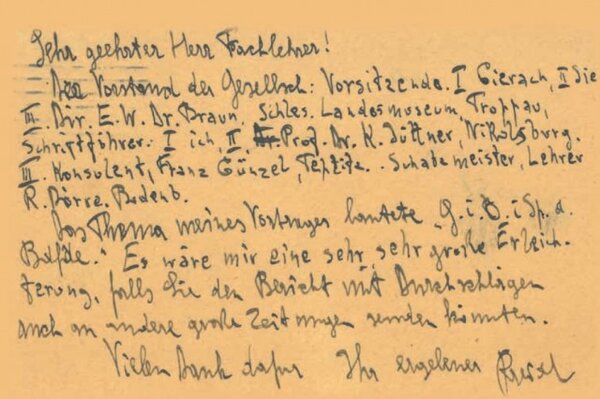 Sehr geehrter Herr Fachlehrer!
Der Vorstand der Gesellsch: Vorsitzende. I Gierach, II Sie
III. Dir. E. W. Dr. Braun, Schles. Landesmuseum, Troppau,
Schriftführer: I ich, II, Prof. Dr. K. Jüttner, Nikolsburg.
III. Konsulent, Franz Günzel, . Schatzmeister, Lehrer
R. Dörre. Bodenb.
Das Thema meines Vortrages lautete „G. i. O. i Sp. d.
Es wäre mir eine sehr, sehr große Erleich-
terung, falls Sie den Bericht mit Durchschlägen
auch an andere große Zeitungen senden könnten.
Vielen Dank dafür Ihr ergebener